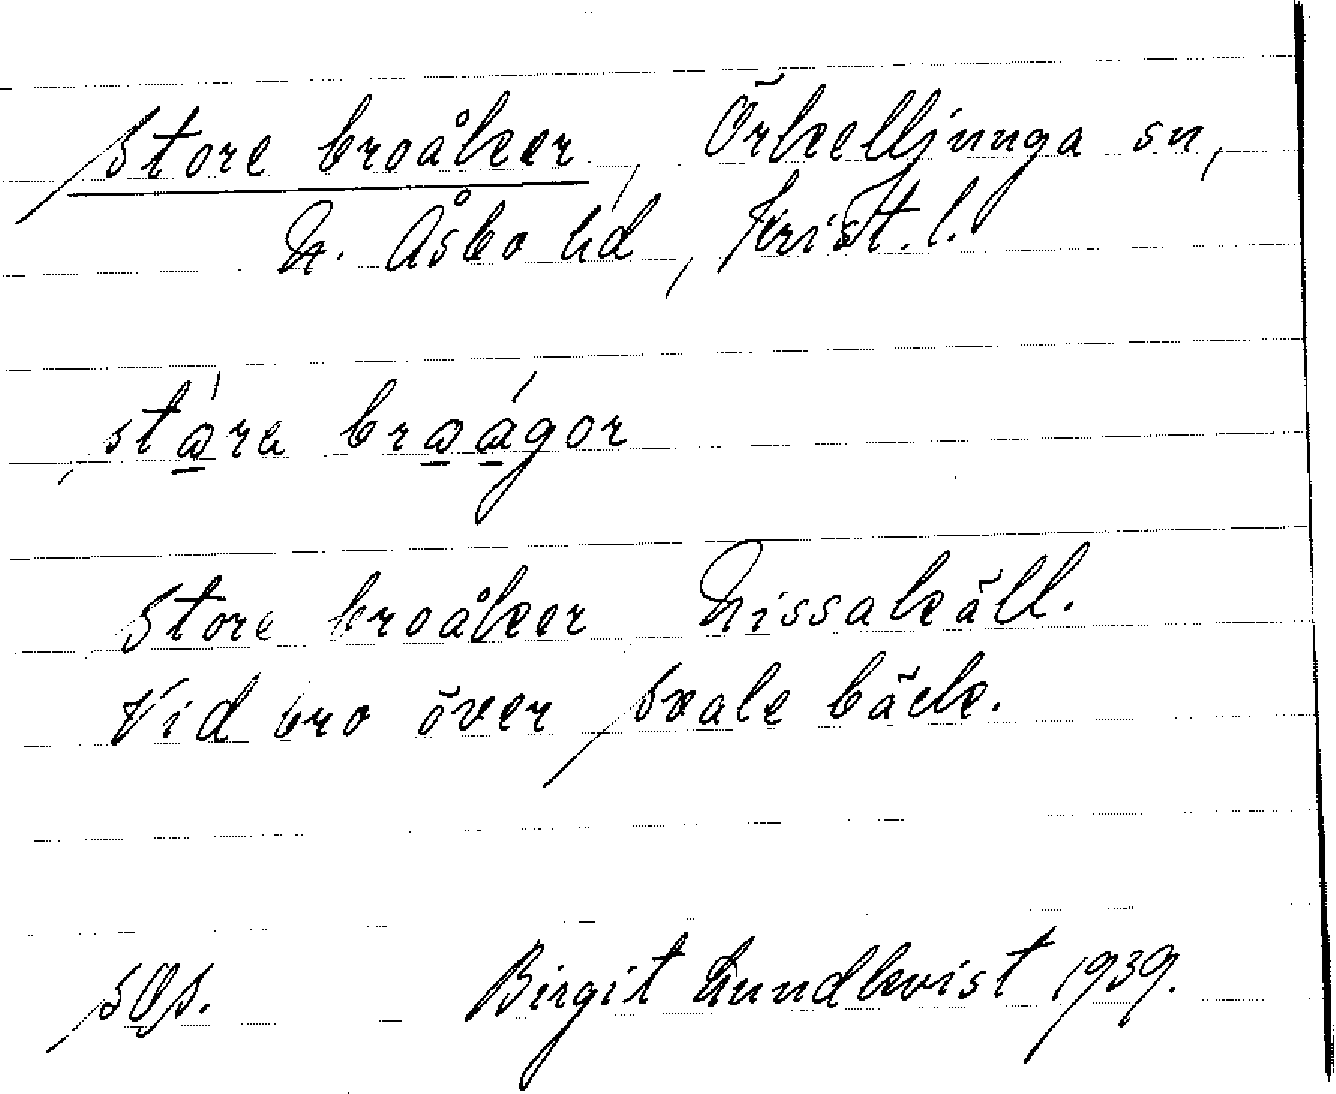 Store broåker, Örkelljunga sn,
N. Åsbo hd, Krist. l.
stora broågor
Store broåker Nissakäll.
Vid bro över Svale bäck.
sGs. Birgit Lundkvist 1939.